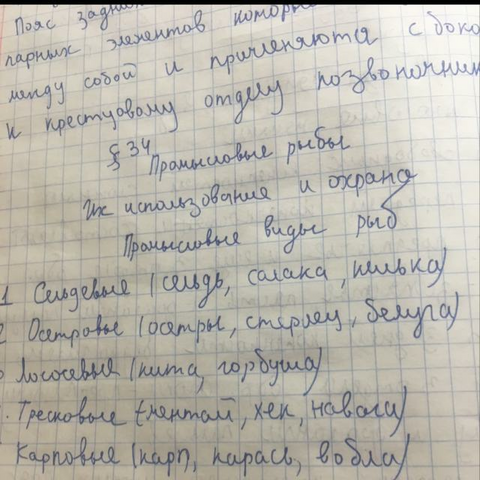 Пояс
парных элементов которые
между собой и причленяются с боко
к крестцовому отделу позвоночник
§ 34
Промысловые рыбы
Их использование и охрана
Промысловые виды рыб
1 Сельдевые (сельдь, салака, килька)
2 Осетровые (осетры, стерлец, белуга)
Лососевые (кита, горбуша)
Тресковые (ментай, хек, навага)
Карповые (карп, карась, вобла)